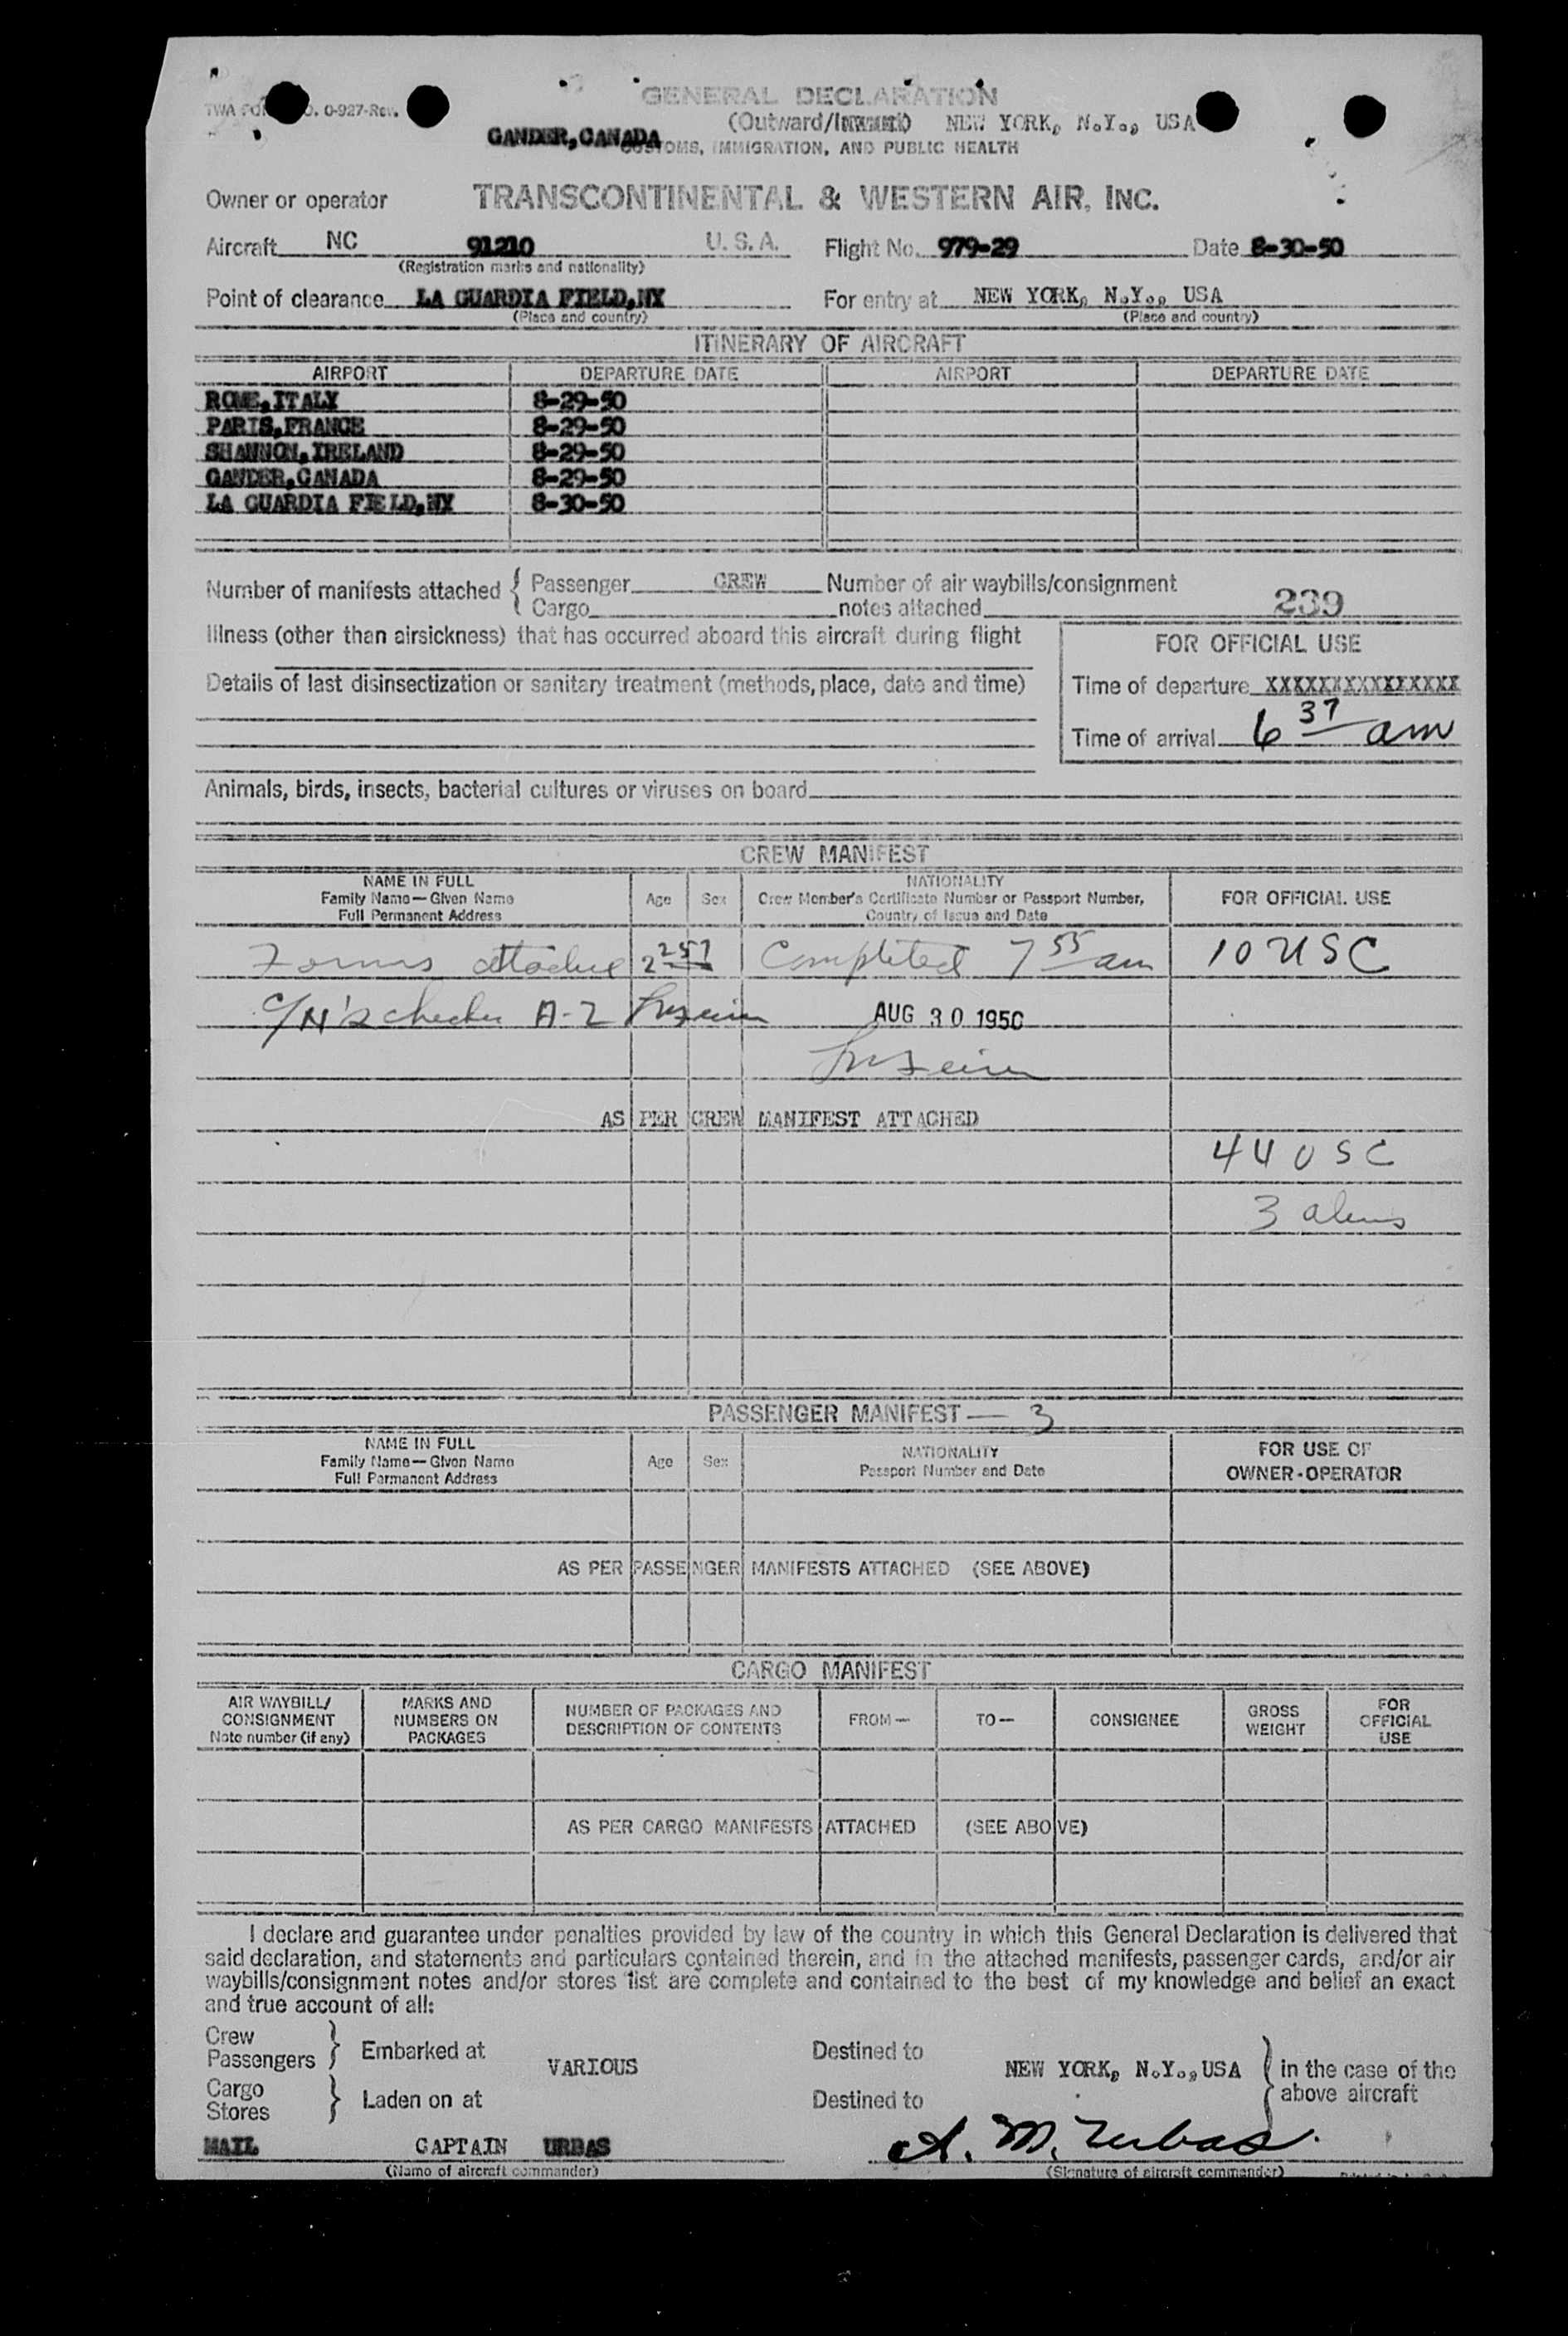 GENERAL DECLARATION
TWA 0-927-Rev.
(Outward/ ) NEW YORK, N.Y., USA
GANDER,CANADA
CUSTOMS, IMMIGRATION, AND PUBLIC HEALTH
Owner or operator TRANSCONTINENTAL & WESTERN AIR, INC.
Aircraft NC 91210 U. S. A. Flight No. 979-29 Date 8-30-50
(Registration marks and nationality)
Point of clearance LA GUARDIA FIELD,NY For entry at NEW YORK, N.Y., USA
(Place and country) (Place and country)
ITINERARY OF AIRCRAFT
AIRPORT DEPARTURE DATE AIRPORT DEPARTURE DATE
ROME,ITALY 8-29-50
PARIS,FRANCE 8-29-50
SHANNON,IRELAND 8-29-50
GANDER,CANADA 8-29-50
LA GUARDIA FIELD,NY 8-30-50
Number of manifests attached { Passenger CREW Number of air waybills/consignment
Cargo notes attached 239
Illness (other than airsickness) that has occurred aboard this aircraft during flight
FOR OFFICIAL USE
Details of last disinsectization or sanitary treatment (methods, place, date and time)
Time of departure XXXXXXXXXXXXXXX
Time of arrival 6 37 am
Animals, birds, insects, bacterial cultures or viruses on board
CREW MANIFEST
NAME IN FULL Family Name—Given Name Full Permanent Address
Age Sex
NATIONALITY Crew Member's Certificate Number or Passport Number, Country of Issue and Date
FOR OFFICIAL USE
Forms attached Completed 7 55 am 10 USC
A-2
AUG 30 1950
AS PER CREW MANIFEST ATTACHED
44 USC
3 aliens
PASSENGER MANIFEST — 3
NAME IN FULL Family Name—Given Name Full Permanent Address
Age Sex
NATIONALITY Passport Number and Date
FOR USE OF OWNER-OPERATOR
AS PER PASSENGER MANIFESTS ATTACHED (SEE ABOVE)
CARGO MANIFEST
AIR WAYBILL/ CONSIGNMENT Note number (if any)
MARKS AND NUMBERS ON PACKAGES
NUMBER OF PACKAGES AND DESCRIPTION OF CONTENTS
FROM—
TO—
CONSIGNEE
GROSS WEIGHT
FOR OFFICIAL USE
AS PER CARGO MANIFESTS ATTACHED (SEE ABOVE)
I declare and guarantee under penalties provided by law of the country in which this General Declaration is delivered that
said declaration, and statements and particulars contained therein, and in the attached manifests, passenger cards, and/or air
waybills/consignment notes and/or stores list are complete and contained to the best of my knowledge and belief an exact
and true account of all:
Crew
Passengers } Embarked at VARIOUS Destined to NEW YORK, N.Y.,USA } in the case of the
Cargo
Stores } Laden on at Destined to above aircraft
MAIL CAPTAIN URBAS A. M. Urbas.
(Name of aircraft commander) (Signature of aircraft commander)